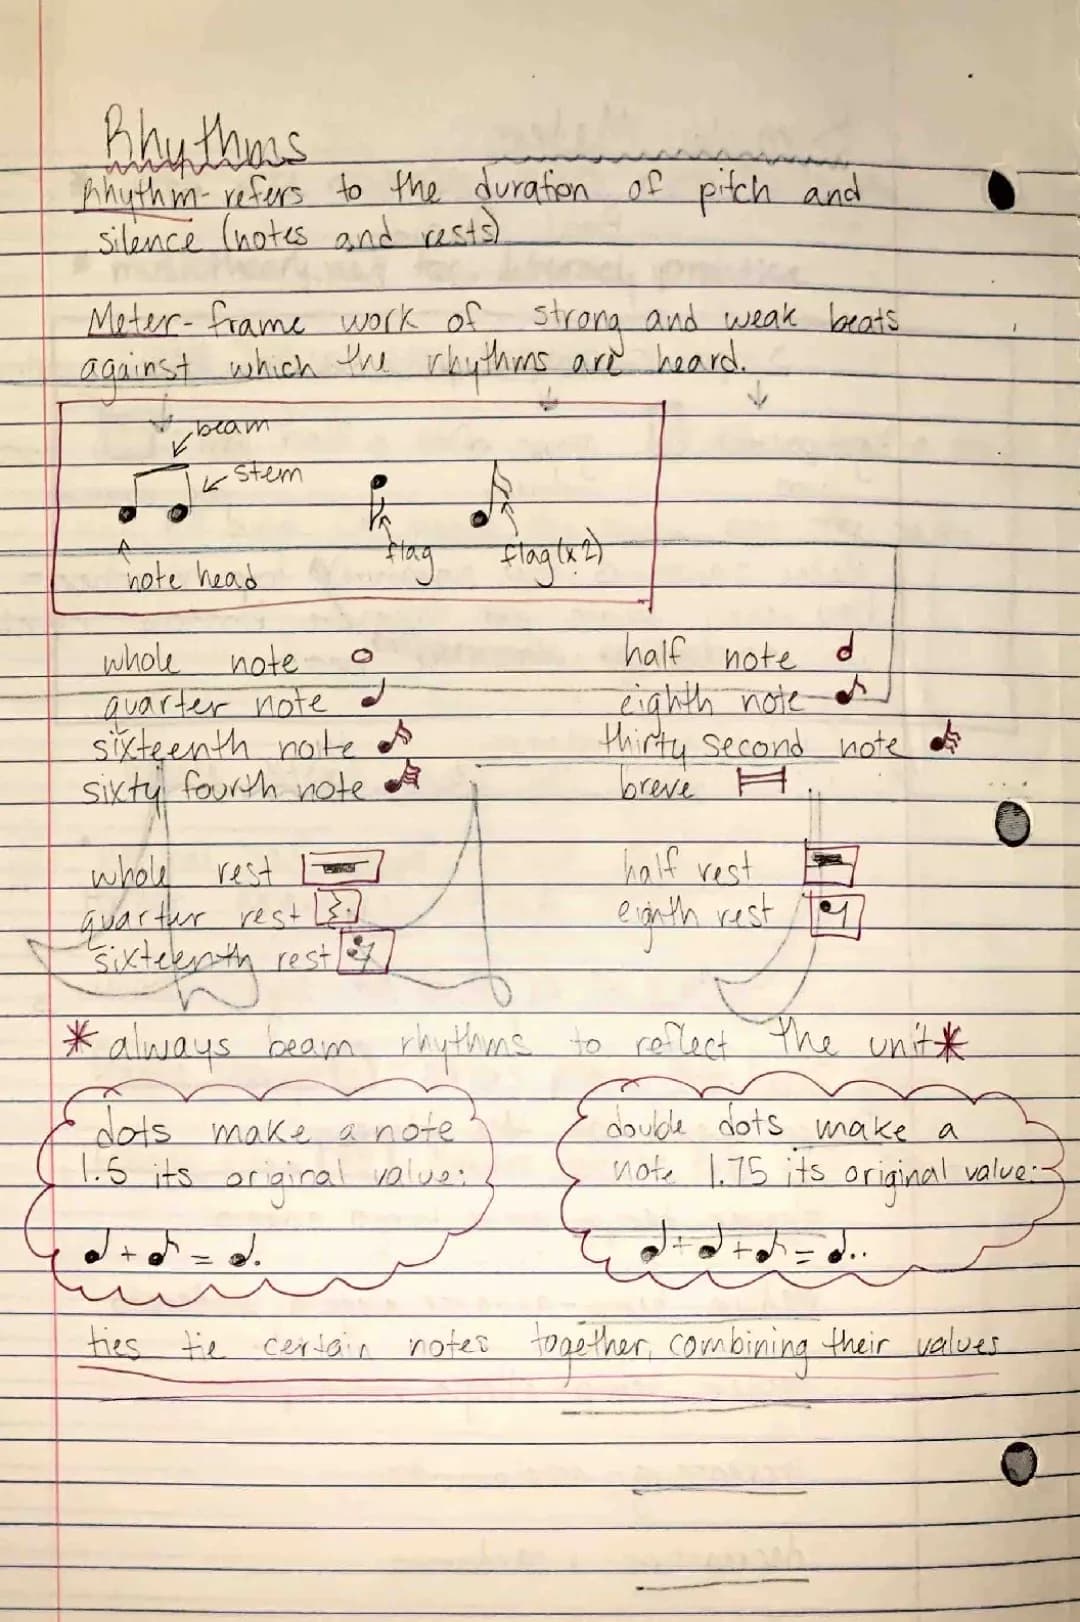 Rhythms
Rhythm- refers to the duration of pitch and
silence (notes and rests)
Meter- frame work of strong and weak beats
against which the rhythms are heard.
beam
stem
flag flag (x2)
note head
whole note half note
quarter note eighth note
sixteenth note thirty second note
sixty fourth note breve
whole rest half rest
quarter rest eighth rest
sixteenth rest
* always beam rhythms to reflect the unit *
dots make a note
1.5 its original value:
♩ + ♪ = ♩.
double dots make a
note 1.75 its original value:
♩ + ♩ + ♪ = ♩..
ties tie certain notes together, combining their values